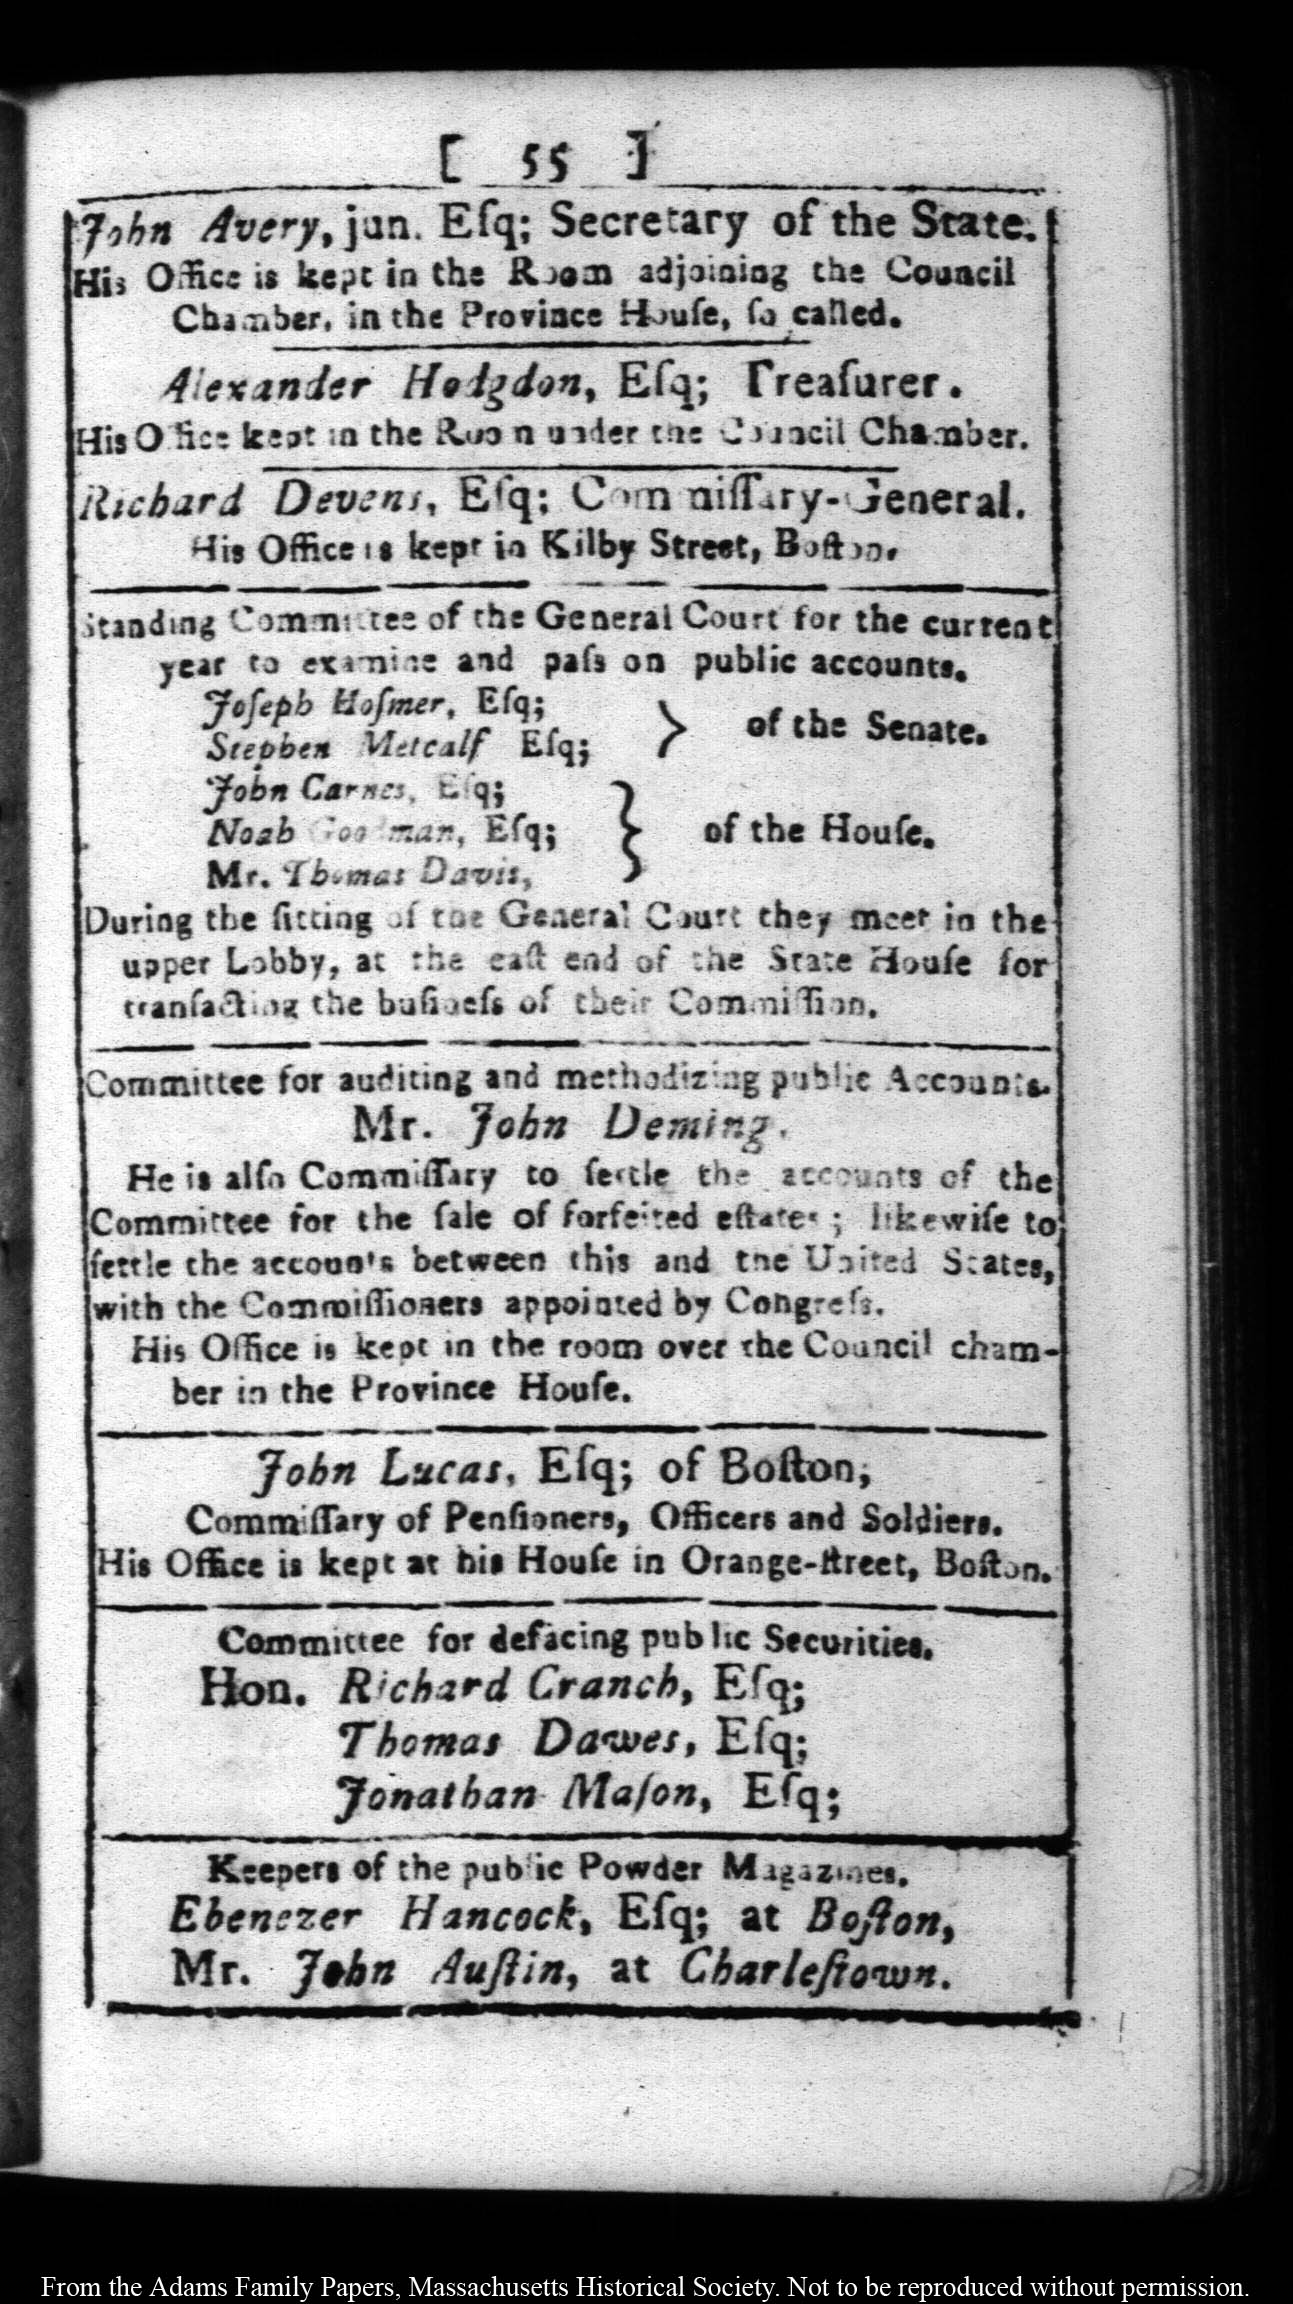 [ 55 ]
John Avery, jun. Eſq; Secretary of the State.
His Office is kept in the Room adjoining the Council
Chamber, in the Province Houſe, ſo called.
Alexander Hodgdon, Eſq; Treaſurer.
His Office kept in the Room under the Council Chamber.
Richard Devens, Eſq; Commiſſary-General.
His Office is kept in Kilby Street, Boſton.
Standing Committee of the General Court for the current
year to examine and paſs on public accounts.
Joſeph Hoſmer, Eſq;
Stephen Metcalf Eſq;
} of the Senate.
John Carnes, Eſq;
Noah Goodman, Eſq;
Mr. Thomas Davis,
} of the Houſe.
During the ſitting of the General Court they meet in the
upper Lobby, at the eaſt end of the State Houſe for
tranſacting the buſineſs of their Commiſſion.
Committee for auditing and methodizing public Accounts.
Mr. John Deming.
He is alſo Commiſſary to ſettle the accounts of the
Committee for the ſale of forfeited eſtates; likewiſe to
ſettle the accounts between this and the United States,
with the Commiſſioners appointed by Congreſs.
His Office is kept in the room over the Council cham-
ber in the Province Houſe.
John Lucas, Eſq; of Boſton;
Commiſſary of Penſioners, Officers and Soldiers.
His Office is kept at his Houſe in Orange-ſtreet, Boſton.
Committee for defacing public Securities.
Hon. Richard Cranch, Eſq;
Thomas Dawes, Eſq;
Jonathan Maſon, Eſq;
Keepers of the public Powder Magazines.
Ebenezer Hancock, Eſq; at Boſton,
Mr. John Auſtin, at Charleſtown.
From the Adams Family Papers, Massachusetts Historical Society. Not to be reproduced without permission.